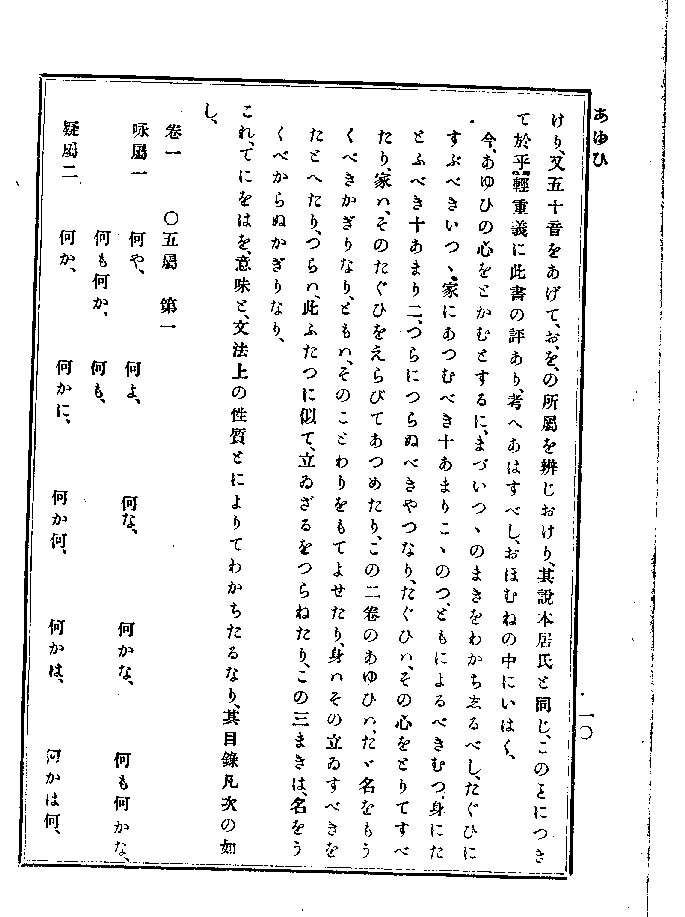 あゆひ
一〇
けり、又五十音をあげて、お、を、の所屬を辨じおけり、其說本居氏と同じ、このことにつき
て於乎輕重義に此書の評あり、考へあはすべし、おほむねの中にいはく、
今、あゆひの心をとかむとするに、まづいつゝのまきをわかち志るべし、たぐひに
すぶべきいつゝ、家にあつむべき十あまりこゝのつ、ともによるべきむつ、身にた
とふべき十あまり二、つらにつらぬべきやつなり、たぐひハ、その心をとりてすべ
たり、家ハ、そのたぐひをえらびてあつめたり、この二卷のあゆひハ、たゞ名をもう
くべきかぎりなり、ともハ、そのことわりをもてよせたり、身ハその立ゐすべきを
たとへたり、つらハ、此ふたつに似て、立ゐざるをつらねたり、この三まきは、名をう
くべからぬかぎりなり、
これ、てにをはを、意味と、文法上の性質とによりてわかちたるなり、其目錄凡次の如
し、
卷一 〇五屬 第一
咏屬一 何や、 何よ、 何な、 何かな、 何も何かな、
何も何か、 何も、
疑屬二 何か、 何かに、 何か何、 何かは、 何かは何、